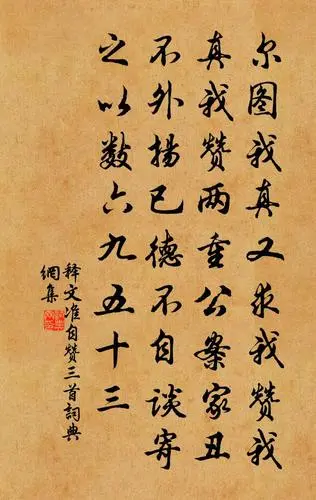 尔图我真又求我赞我
真我赞两重公案家丑
不外扬已德不自谈寄
之以数六九五十三
释文准自赞三首词典
網集